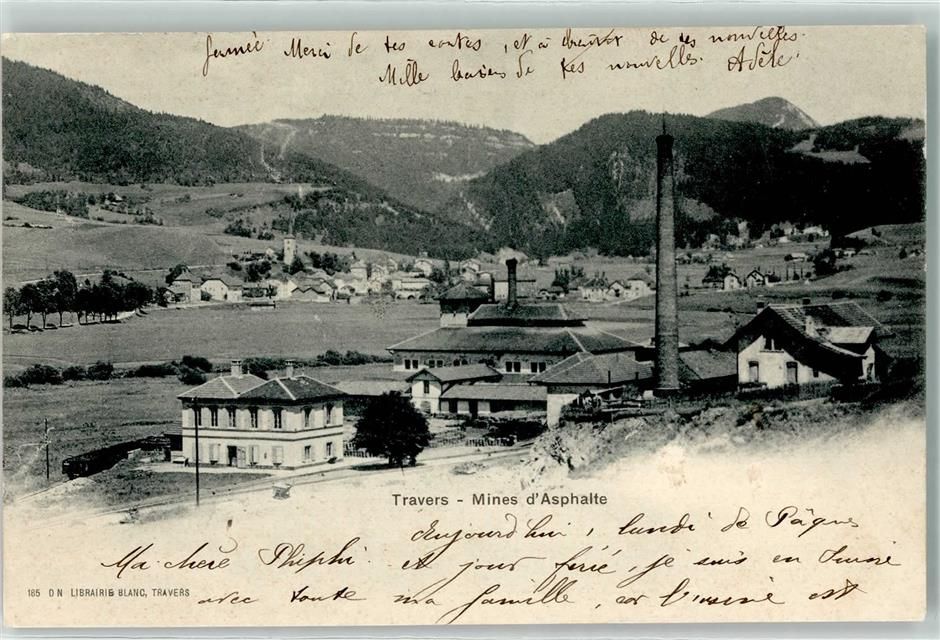 fermée. Merci de tes cartes, et à bientôt de tes nouvelles.
Mille baisers de tes nouvelles. Adèle.
Travers - Mines d'Asphalte
Aujourd'hui, lundi de Pâques
Ma chère Phiphi. et jour férié, je suis en
avec toute ma famille, car l'usine est
185 D N LIBRAIRIE BLANC, TRAVERS